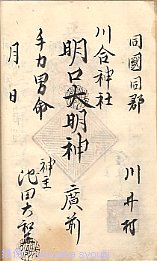 同國同郡
川井村
川合神社
明口大明神 廣前
手力男命
神主
池田
月日